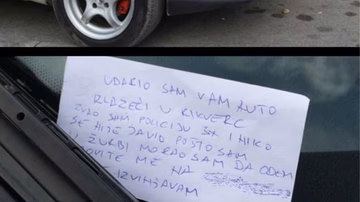 UDARIO SAM VAM AUTO
IZLAZEĆI U RIKVERC
ZVAO SAM POLICIJU 3X I NIKO
SE NIJE JAVIO POŠTO SAM
U ŽURBI MORAO SAM DA ODEM
ZOVITE ME NA
IZVINJAVAM